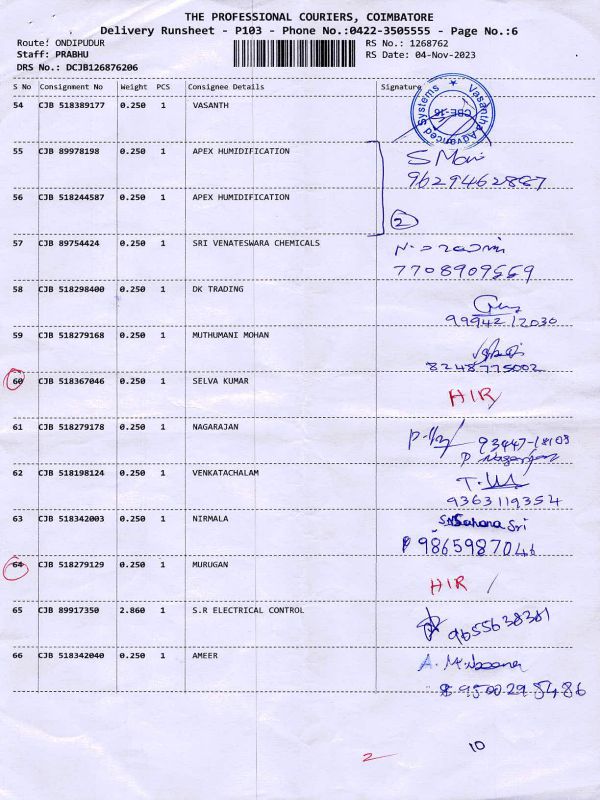 THE PROFESSIONAL COURIERS, COIMBATORE
Delivery Runsheet - P103 - Phone No.:0422-3505555 - Page No.:6
Route: ONDIPUDUR RS No.: 1268762
Staff: PRABHU RS Date: 04-Nov-2023
DRS No.: DCJB126876206
S No Consignment No Weight PCS Consignee Details Signature
54 CJB 518389177 0.250 1 VASANTH
Vasantha Advanced Systems ★ CBE-16
55 CJB 89978198 0.250 1 APEX HUMIDIFICATION S Mani
9629462887
56 CJB 518244587 0.250 1 APEX HUMIDIFICATION
2
57 CJB 89754424 0.250 1 SRI VENATESWARA CHEMICALS
7708909559
58 CJB 518298400 0.250 1 DK TRADING
9994212030
59 CJB 518279168 0.250 1 MUTHUMANI MOHAN
8248775002
60 CJB 518367046 0.250 1 SELVA KUMAR HIR
61 CJB 518279178 0.250 1 NAGARAJAN
93447-18108
P. Nagarajan
62 CJB 518198124 0.250 1 VENKATACHALAM
9363119354
63 CJB 518342003 0.250 1 NIRMALA Sahana Sri
9865987046
64 CJB 518279129 0.250 1 MURUGAN HIR
65 CJB 89917350 2.860 1 S.R ELECTRICAL CONTROL
9655638381
66 CJB 518342040 0.250 1 AMEER
9500295486
2 10